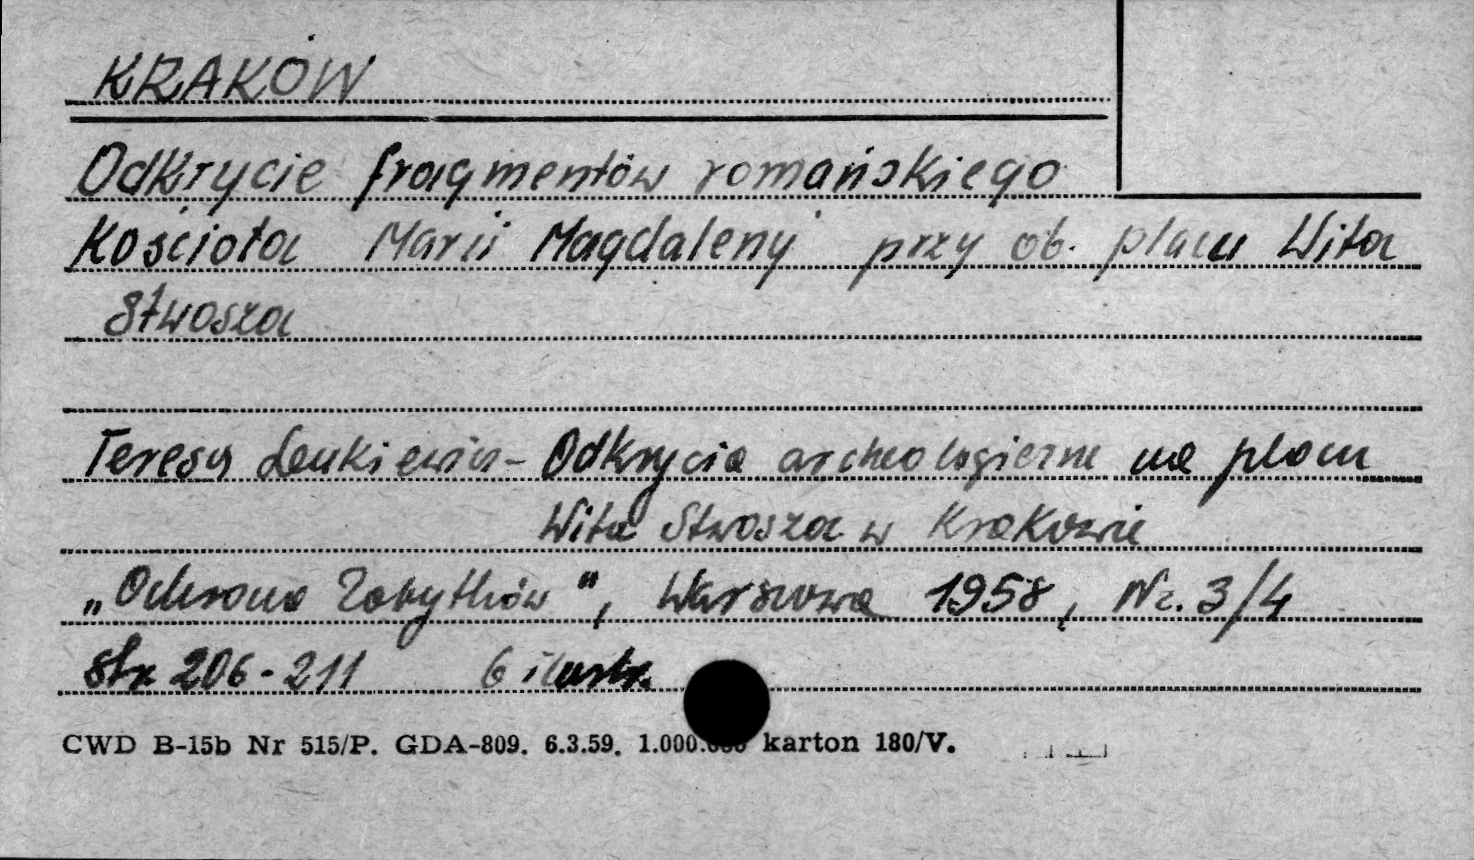 KRAKÓW
Odkrycie fragmentów romańskiego
Kościoła Marii Magdaleny przy ob. placu Wita
Stwosza
Teresa Lenkiewicz - Odkrycia archeologiczne na placu
Wita Stwosza w Krakowie
„Ochrona Zabytków", Warszawa 1958, Nr. 3/4
str 206-211 6 ilustr.
CWD B-15b Nr 515/P. GDA-809. 6.3.59. 1.000.000 karton 180/V.